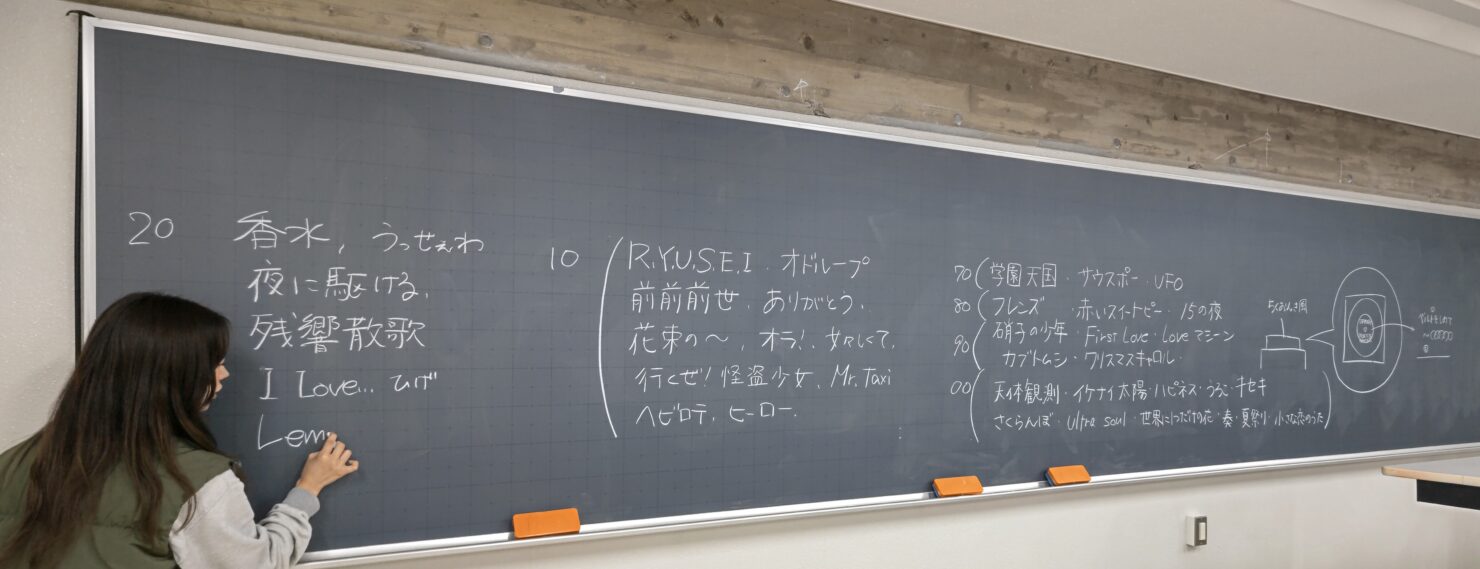 20 香水, うっせぇわ
夜に駆ける,
残響散歌
I Love... ひげ
Lem
10
R.Y.U.S.E.I・オドループ
前前前世, ありがとう,
花束の〜 オラ!, 女々しくて,
行くぜ!怪盗少女, Mr.Taxi
ヘビロテ, ヒーロー.
70 学園天国・サウスポー・UFO
80 フレンズ・赤いスイートピー・15の夜
90 硝子の少年・First Love・Loveマシーン
カブトムシ・クリスマスキャロル・
00 天体観測・イケナイ太陽・ハピネス・うろこ・キセキ
さくらんぼ・Ultra soul・世界に1つだけの花・奏・夏祭り・小さな恋のうた